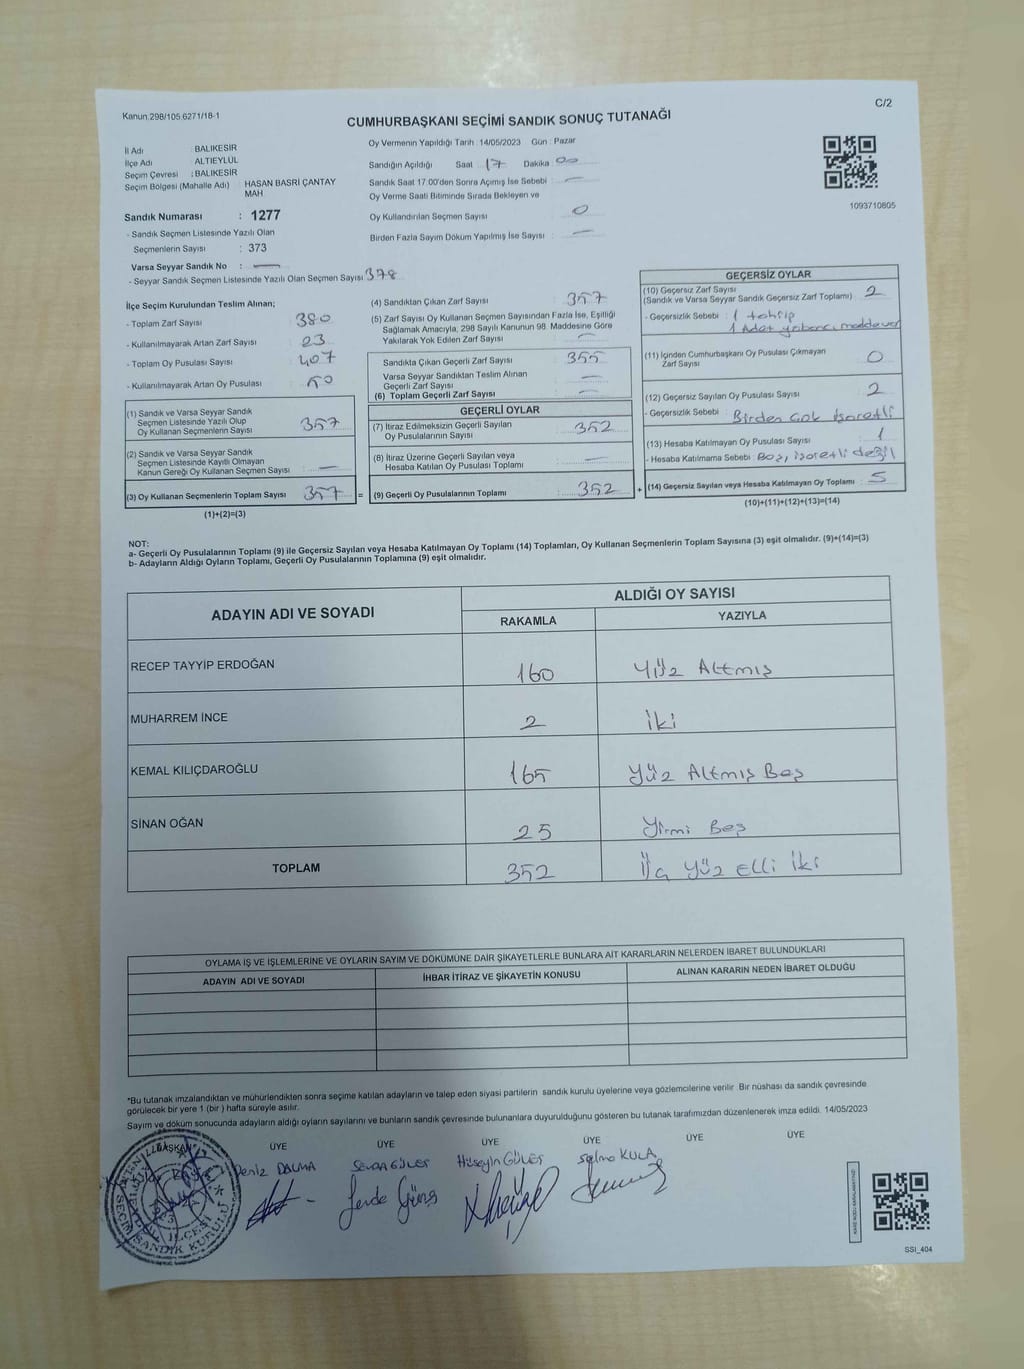 Kanun.298/105.6271/18-1
C/2
CUMHURBAŞKANI SEÇİMİ SANDIK SONUÇ TUTANAĞI
İl Adı : BALIKESİR
İlçe Adı : ALTIEYLÜL
Seçim Çevresi : BALIKESİR
Seçim Bölgesi (Mahalle Adı) : HASAN BASRİ ÇANTAY
MAH
Sandık Numarası : 1277
- Sandık Seçmen Listesinde Yazılı Olan
Seçmenlerin Sayısı : 373
Varsa Seyyar Sandık No : —
- Seyyar Sandık Seçmen Listesinde Yazılı Olan Seçmen Sayısı 378
Oy Vermenin Yapıldığı Tarih : 14/05/2023 Gün : Pazar
Sandığın Açıldığı Saat : 17 Dakika : 00
Sandık Saat 17.00'den Sonra Açımış İse Sebebi : —
Oy Verme Saati Bitiminde Sırada Bekleyen ve
Oy Kullandırılan Seçmen Sayısı : 0
Birden Fazla Sayım Döküm Yapılmış İse Sayısı : —
1093710805
İlçe Seçim Kurulundan Teslim Alınan;
- Toplam Zarf Sayısı : 380
- Kullanılmayarak Artan Zarf Sayısı : 23
- Toplam Oy Pusulası Sayısı : 407
- Kullanılmayarak Artan Oy Pusulası : 50
(1) Sandık ve Varsa Seyyar Sandık
Seçmen Listesinde Yazılı Olup
Oy Kullanan Seçmenlerin Sayısı : 357
(2) Sandık ve Varsa Seyyar Sandık
Seçmen Listesinde Kayıtlı Olmayan
Kanun Gereği Oy Kullanan Seçmen Sayısı : —
(3) Oy Kullanan Seçmenlerin Toplam Sayısı : 357 =
(1)+(2)=(3)
(4) Sandıktan Çıkan Zarf Sayısı : 357
(5) Zarf Sayısı Oy Kullanan Seçmen Sayısından Fazla İse, Eşitliği
Sağlamak Amacıyla, 298 Sayılı Kanunun 98. Maddesine Göre
Yakılarak Yok Edilen Zarf Sayısı : —
Sandıkta Çıkan Geçerli Zarf Sayısı : 355
Varsa Seyyar Sandıktan Teslim Alınan
Geçerli Zarf Sayısı : —
(6) Toplam Geçerli Zarf Sayısı : —
GEÇERLİ OYLAR
(7) İtiraz Edilmeksizin Geçerli Sayılan
Oy Pusulalarının Sayısı : 352
(8) İtiraz Üzerine Geçerli Sayılan veya
Hesaba Katılan Oy Pusulası Toplamı : —
(9) Geçerli Oy Pusulalarının Toplamı : 352 +
GEÇERSİZ OYLAR
(10) Geçersiz Zarf Sayısı
(Sandık ve Varsa Seyyar Sandık Geçersiz Zarf Toplamı) : 2
- Geçersizlik Sebebi : 1 tahrip
1 Adet yabancı madde
(11) İçinden Cumhurbaşkanı Oy Pusulası Çıkmayan
Zarf Sayısı : 0
(12) Geçersiz Sayılan Oy Pusulası Sayısı : 2
- Geçersizlik Sebebi : Birden çok işaretli
(13) Hesaba Katılmayan Oy Pusulası Sayısı : 1
- Hesaba Katılmama Sebebi : Boş, işaretli değil
(14) Geçersiz Sayılan veya Hesaba Katılmayan Oy Toplamı : 5
(10)+(11)+(12)+(13)=(14)
NOT:
a- Geçerli Oy Pusulalarının Toplamı (9) ile Geçersiz Sayılan veya Hesaba Katılmayan Oy Toplamı (14) Toplamları, Oy Kullanan Seçmenlerin Toplam Sayısına (3) eşit olmalıdır. (9)+(14)=(3)
b- Adayların Aldığı Oyların Toplamı, Geçerli Oy Pusulalarının Toplamına (9) eşit olmalıdır.
ADAYIN ADI VE SOYADI
ALDIĞI OY SAYISI
RAKAMLA YAZIYLA
RECEP TAYYİP ERDOĞAN 160 Yüz Altmış
MUHARREM İNCE 2 İki
KEMAL KILIÇDAROĞLU 165 Yüz Altmış Beş
SİNAN OĞAN 25 Yirmi Beş
TOPLAM 352 Üç Yüz Elli İki
OYLAMA İŞ VE İŞLEMLERİNE VE OYLARIN SAYIM VE DÖKÜMÜNE DAİR ŞİKAYETLERLE BUNLARA AİT KARARLARIN NELERDEN İBARET BULUNDUKLARI
ADAYIN ADI VE SOYADI İHBAR İTİRAZ VE ŞİKAYETİN KONUSU ALINAN KARARIN NEDEN İBARET OLDUĞU
*Bu tutanak imzalandıktan ve mühürlendikten sonra seçime katılan adayların ve talep eden siyasi partilerin sandık kurulu üyelerine veya gözlemcilerine verilir. Bir nüshası da sandık çevresinde
görülecek bir yere 1 (bir) hafta süreyle asılır.
Sayım ve döküm sonucunda adayların aldığı oyların sayılarını ve bunların sandık çevresinde bulunanlara duyurulduğunu gösteren bu tutanak tarafımızdan düzenlenerek imza edildi. 14/05/2023
BAŞKAN ÜYE ÜYE ÜYE ÜYE ÜYE ÜYE
Deniz DALMA Sevda GÜLER Hüseyin GÜLER Selma KULA
SANDIK KURULU
SSI_404